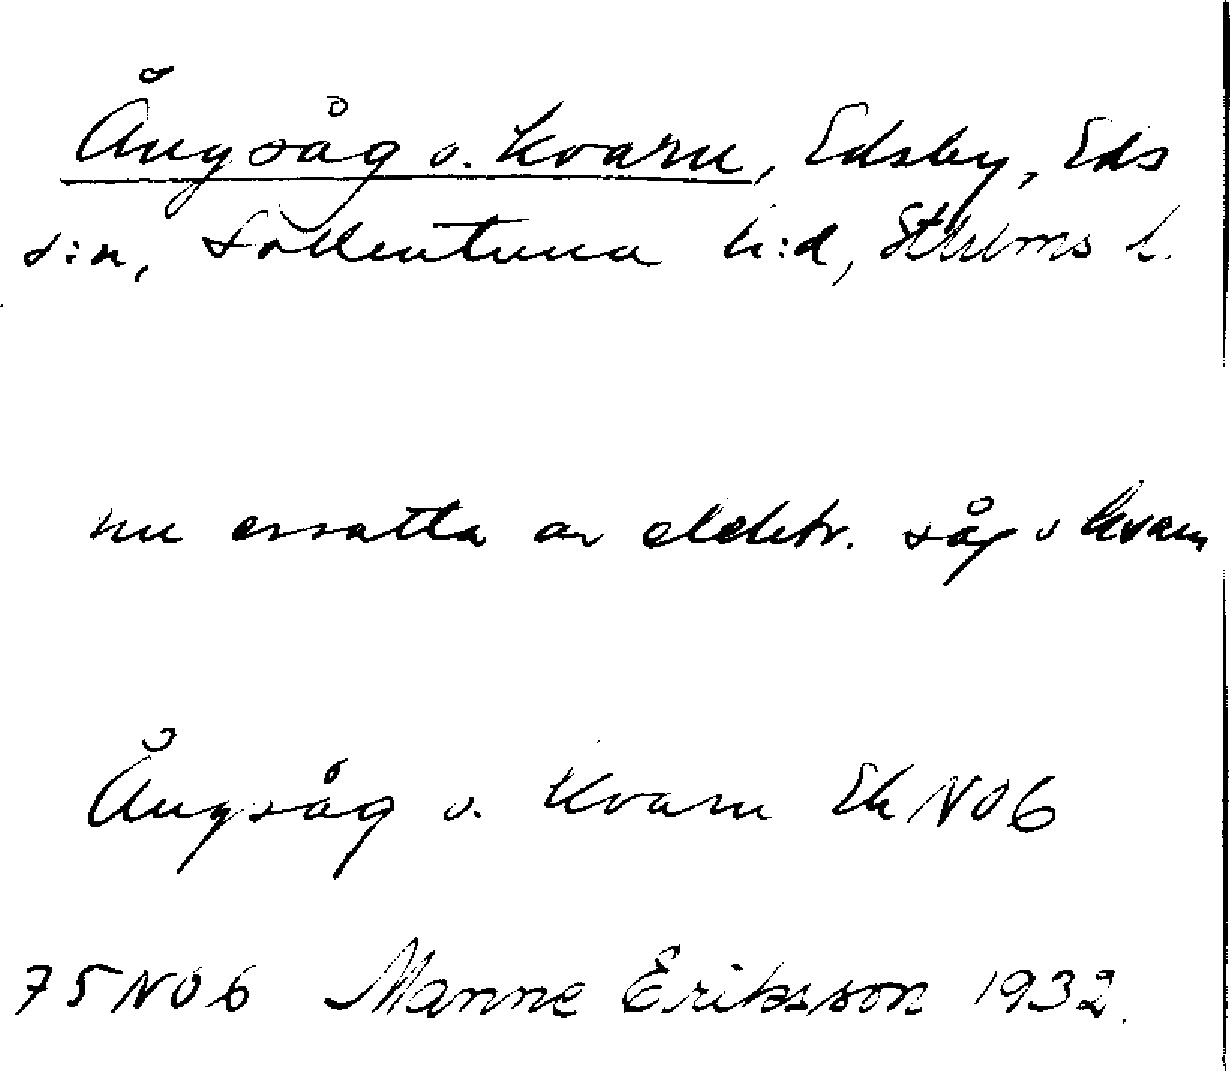 Ångsåg o. kvarn, Edsby, Eds
s:n, Sollentuna h:d, Sthlms l.
nu ersatta av elektr. såg o kvarn
Ångsåg o. kvarn Ek NO6
75NO6 Manne Eriksson 1932.